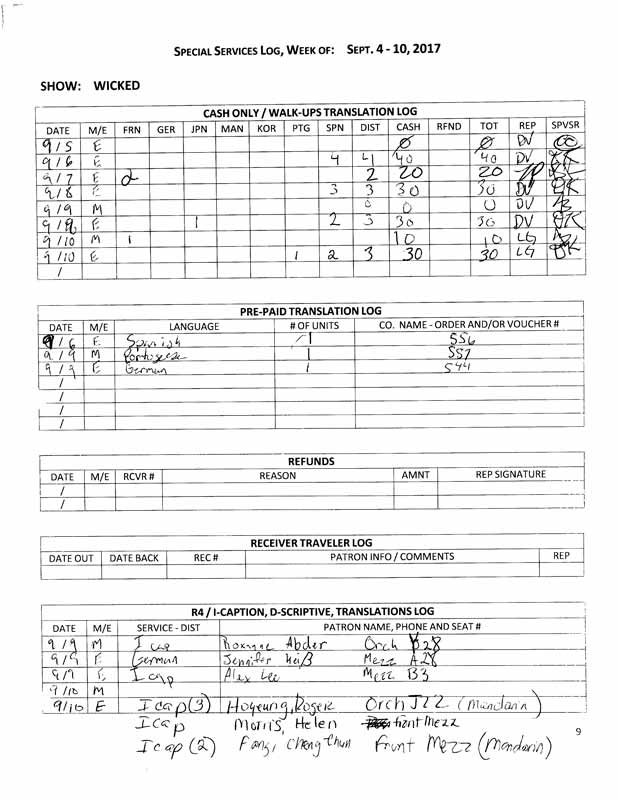 SPECIAL SERVICES LOG, WEEK OF: SEPT. 4 - 10, 2017
SHOW: WICKED
CASH ONLY / WALK-UPS TRANSLATION LOG
DATE M/E FRN GER JPN MAN KOR PTG SPN DIST CASH RFND TOT REP SPVSR
9/5 E 0 0 DV
9/6 E 4 4 40 40 DV
9/7 E 2 2 20 20
9/8 E 3 3 30 30 DV
9/9 M 0 0 0 DV
9/9 E 1 2 3 30 30 DV
9/10 M 1 10 10 LG
9/10 E 1 2 3 30 30 LG
/
PRE-PAID TRANSLATION LOG
DATE M/E LANGUAGE # OF UNITS CO. NAME - ORDER AND/OR VOUCHER #
9/6 E Spanish 1 556
9/9 M Portugese 1 557
9/9 E German 1 544
/
/
/
/
REFUNDS
DATE M/E RCVR # REASON AMNT REP SIGNATURE
/
/
RECEIVER TRAVELER LOG
DATE OUT DATE BACK REC # PATRON INFO / COMMENTS REP
R4 / I-CAPTION, D-SCRIPTIVE, TRANSLATIONS LOG
DATE M/E SERVICE - DIST PATRON NAME, PHONE AND SEAT #
9/9 M I cap Roxyne Abder Orch B28
9/9 E German Jennifer Mezz A28
9/9 E I cap Alex Lee Mezz B3
9/10 M
9/10 E I cap (3) Hoyeung, Roger Orch J22 (Mandarin)
I cap Morris, Helen front Mezz
I cap (2) Fang, Chengchun Front Mezz (Mandarin)
9